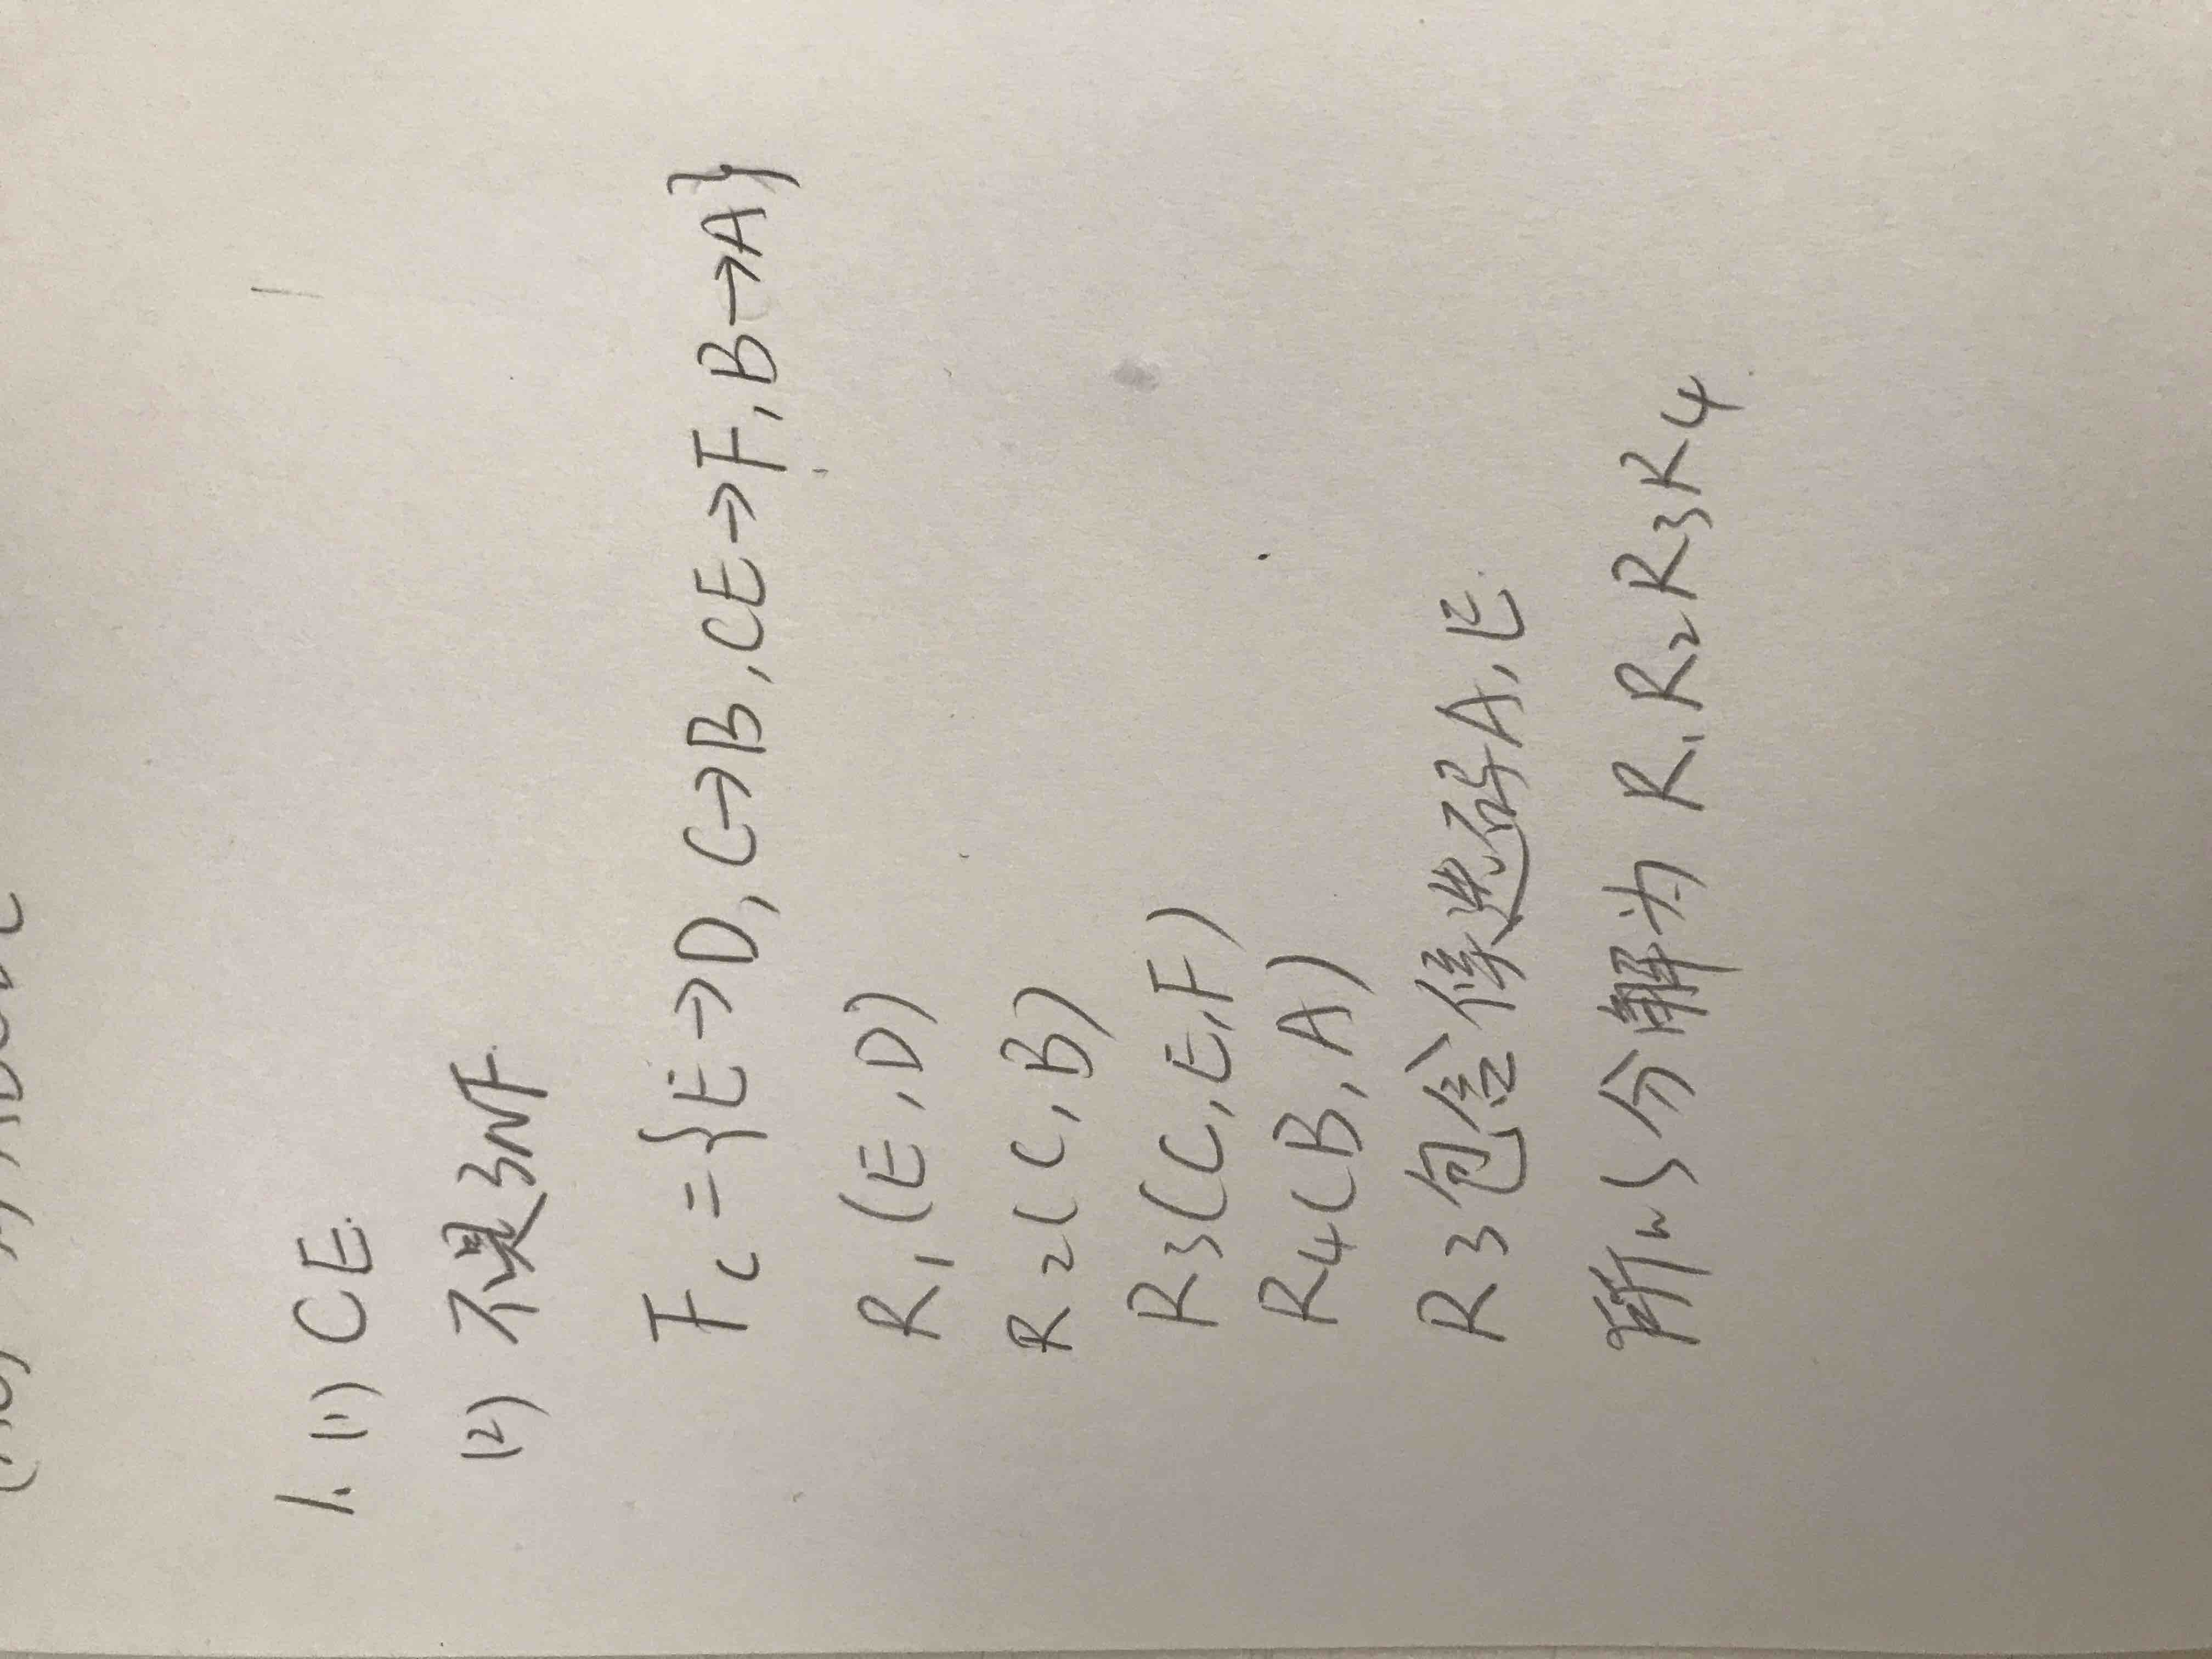 1. (1) CE.
(2) 不是3NF.
Fc = {E→D, C→B, CE→F, B→A}
R1(E,D)
R2(C,B)
R3(C,E,F)
R4(B,A)
R3包含候选码A,E.
所以分解为 R1R2R3R4